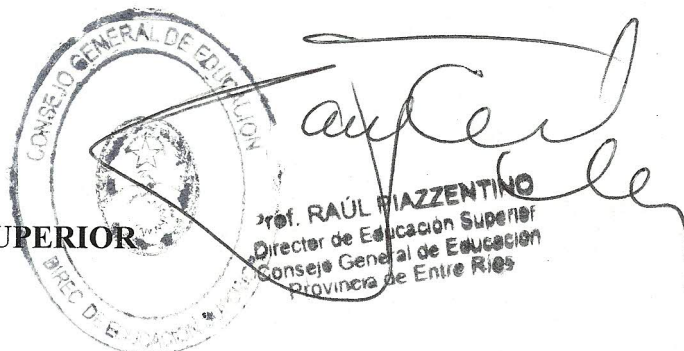 CONSEJO GENERAL DE EDUCACIÓN
UPERIOR
Prof. RAÚL PIAZZENTINO
Director de Educación Superior
Consejo General de Educación
Provincia de Entre Ríos
DIREC DE EDUCACION